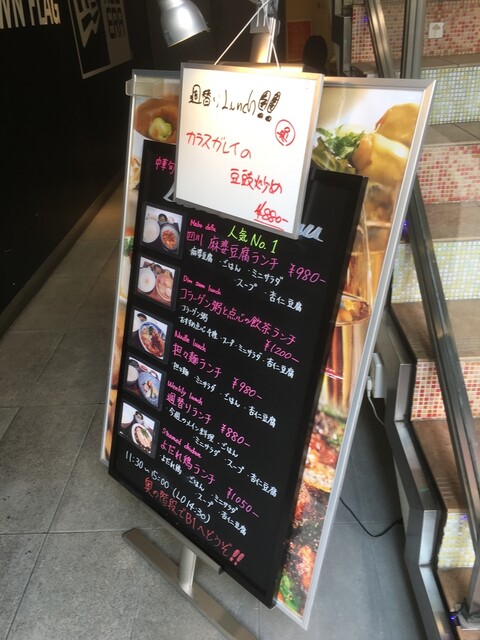 WN FLAG
週替りLunch!!
カラスガレイの
豆鼓炒め
¥880-
人気 No.1
Mabo dofu
四川 麻婆豆腐ランチ ¥980-
麻婆豆腐・ごはん・ミニサラダ
・スープ ・杏仁豆腐
Dim sum lunch
コラーゲン粥と点心の飲茶ランチ
¥1200-
コラーゲン粥
・スープ・ミニサラダ・杏仁豆腐
Noodle lunch
担々麺ランチ ¥980-
担々麺・ミニサラダ・ごはん・杏仁豆腐
Weekly lunch
週替りランチ ¥880-
今週のメイン料理・ごはん
・ミニサラダ・スープ・杏仁豆腐
Steamed chicken
よだれ鶏ランチ ¥1050-
よだれ鶏・ごはん・ミニサラダ
・スープ・杏仁豆腐
11:30~15:00 (LO 14:30)
奥の階段でB1へどうぞ!!